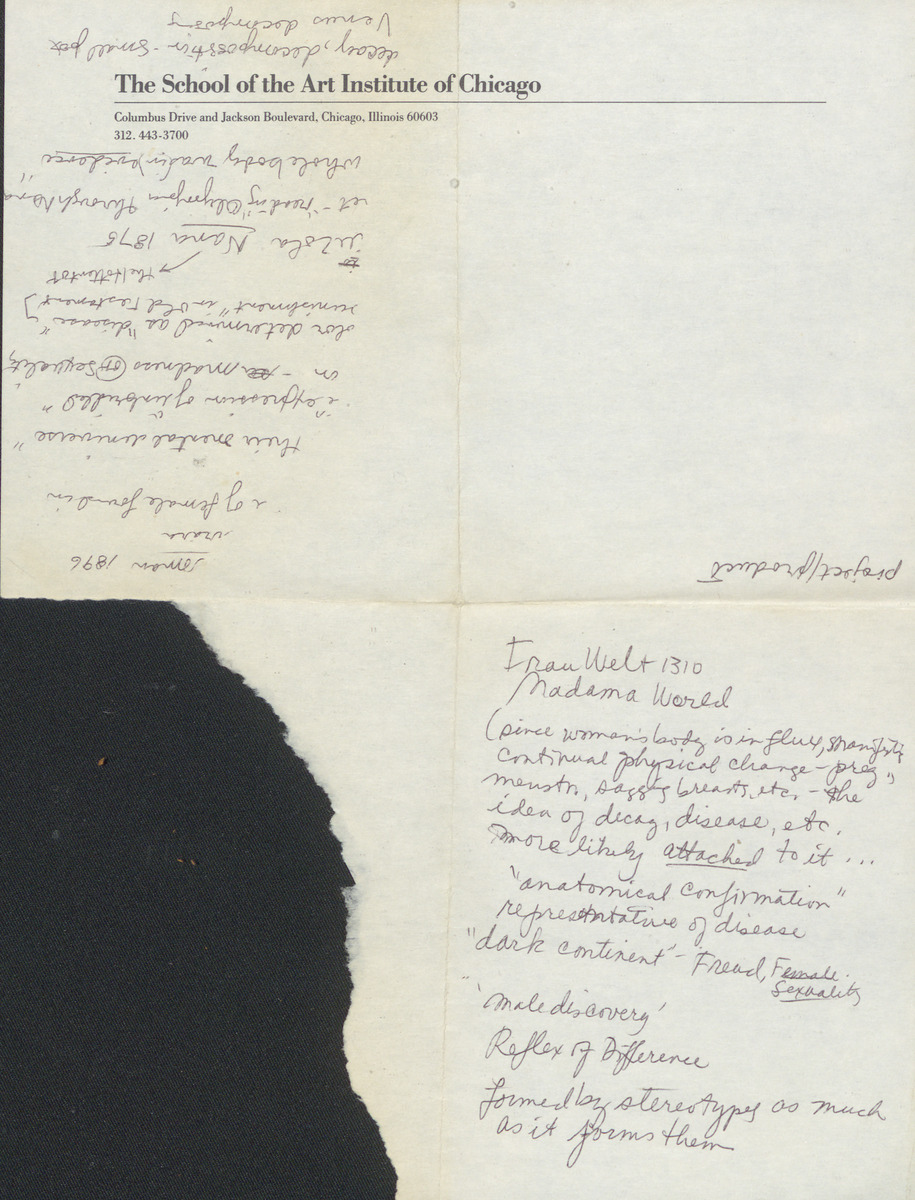 The School of the Art Institute of Chicago
Columbus Drive and Jackson Boulevard, Chicago, Illinois 60603
312. 443-3700
1896
of female found in
their mental universe"
"expression of unbridled"
on - madness or sexuality
olor determined as "disease",
unishment" in Old Testament)
the Hottentot
Zola Nana 1875
et - "reading" Olympia through Nana"
whole body evidence
decay, decomposition - small pox
Venus decomposing
project/product
Frau Welt 1310
Madama World
(since woman's body is in flux,
continual physical change - preg,,
menstr, sagg'g breasts, etc. - the
idea of decay, disease, etc.
more likely attached to it ...
"anatomical confirmation"
representative of disease
"dark continent" - Freud, Female
Sexuality
'male discovery'
Reflex of Difference
formed by stereotypes as much
as it forms them